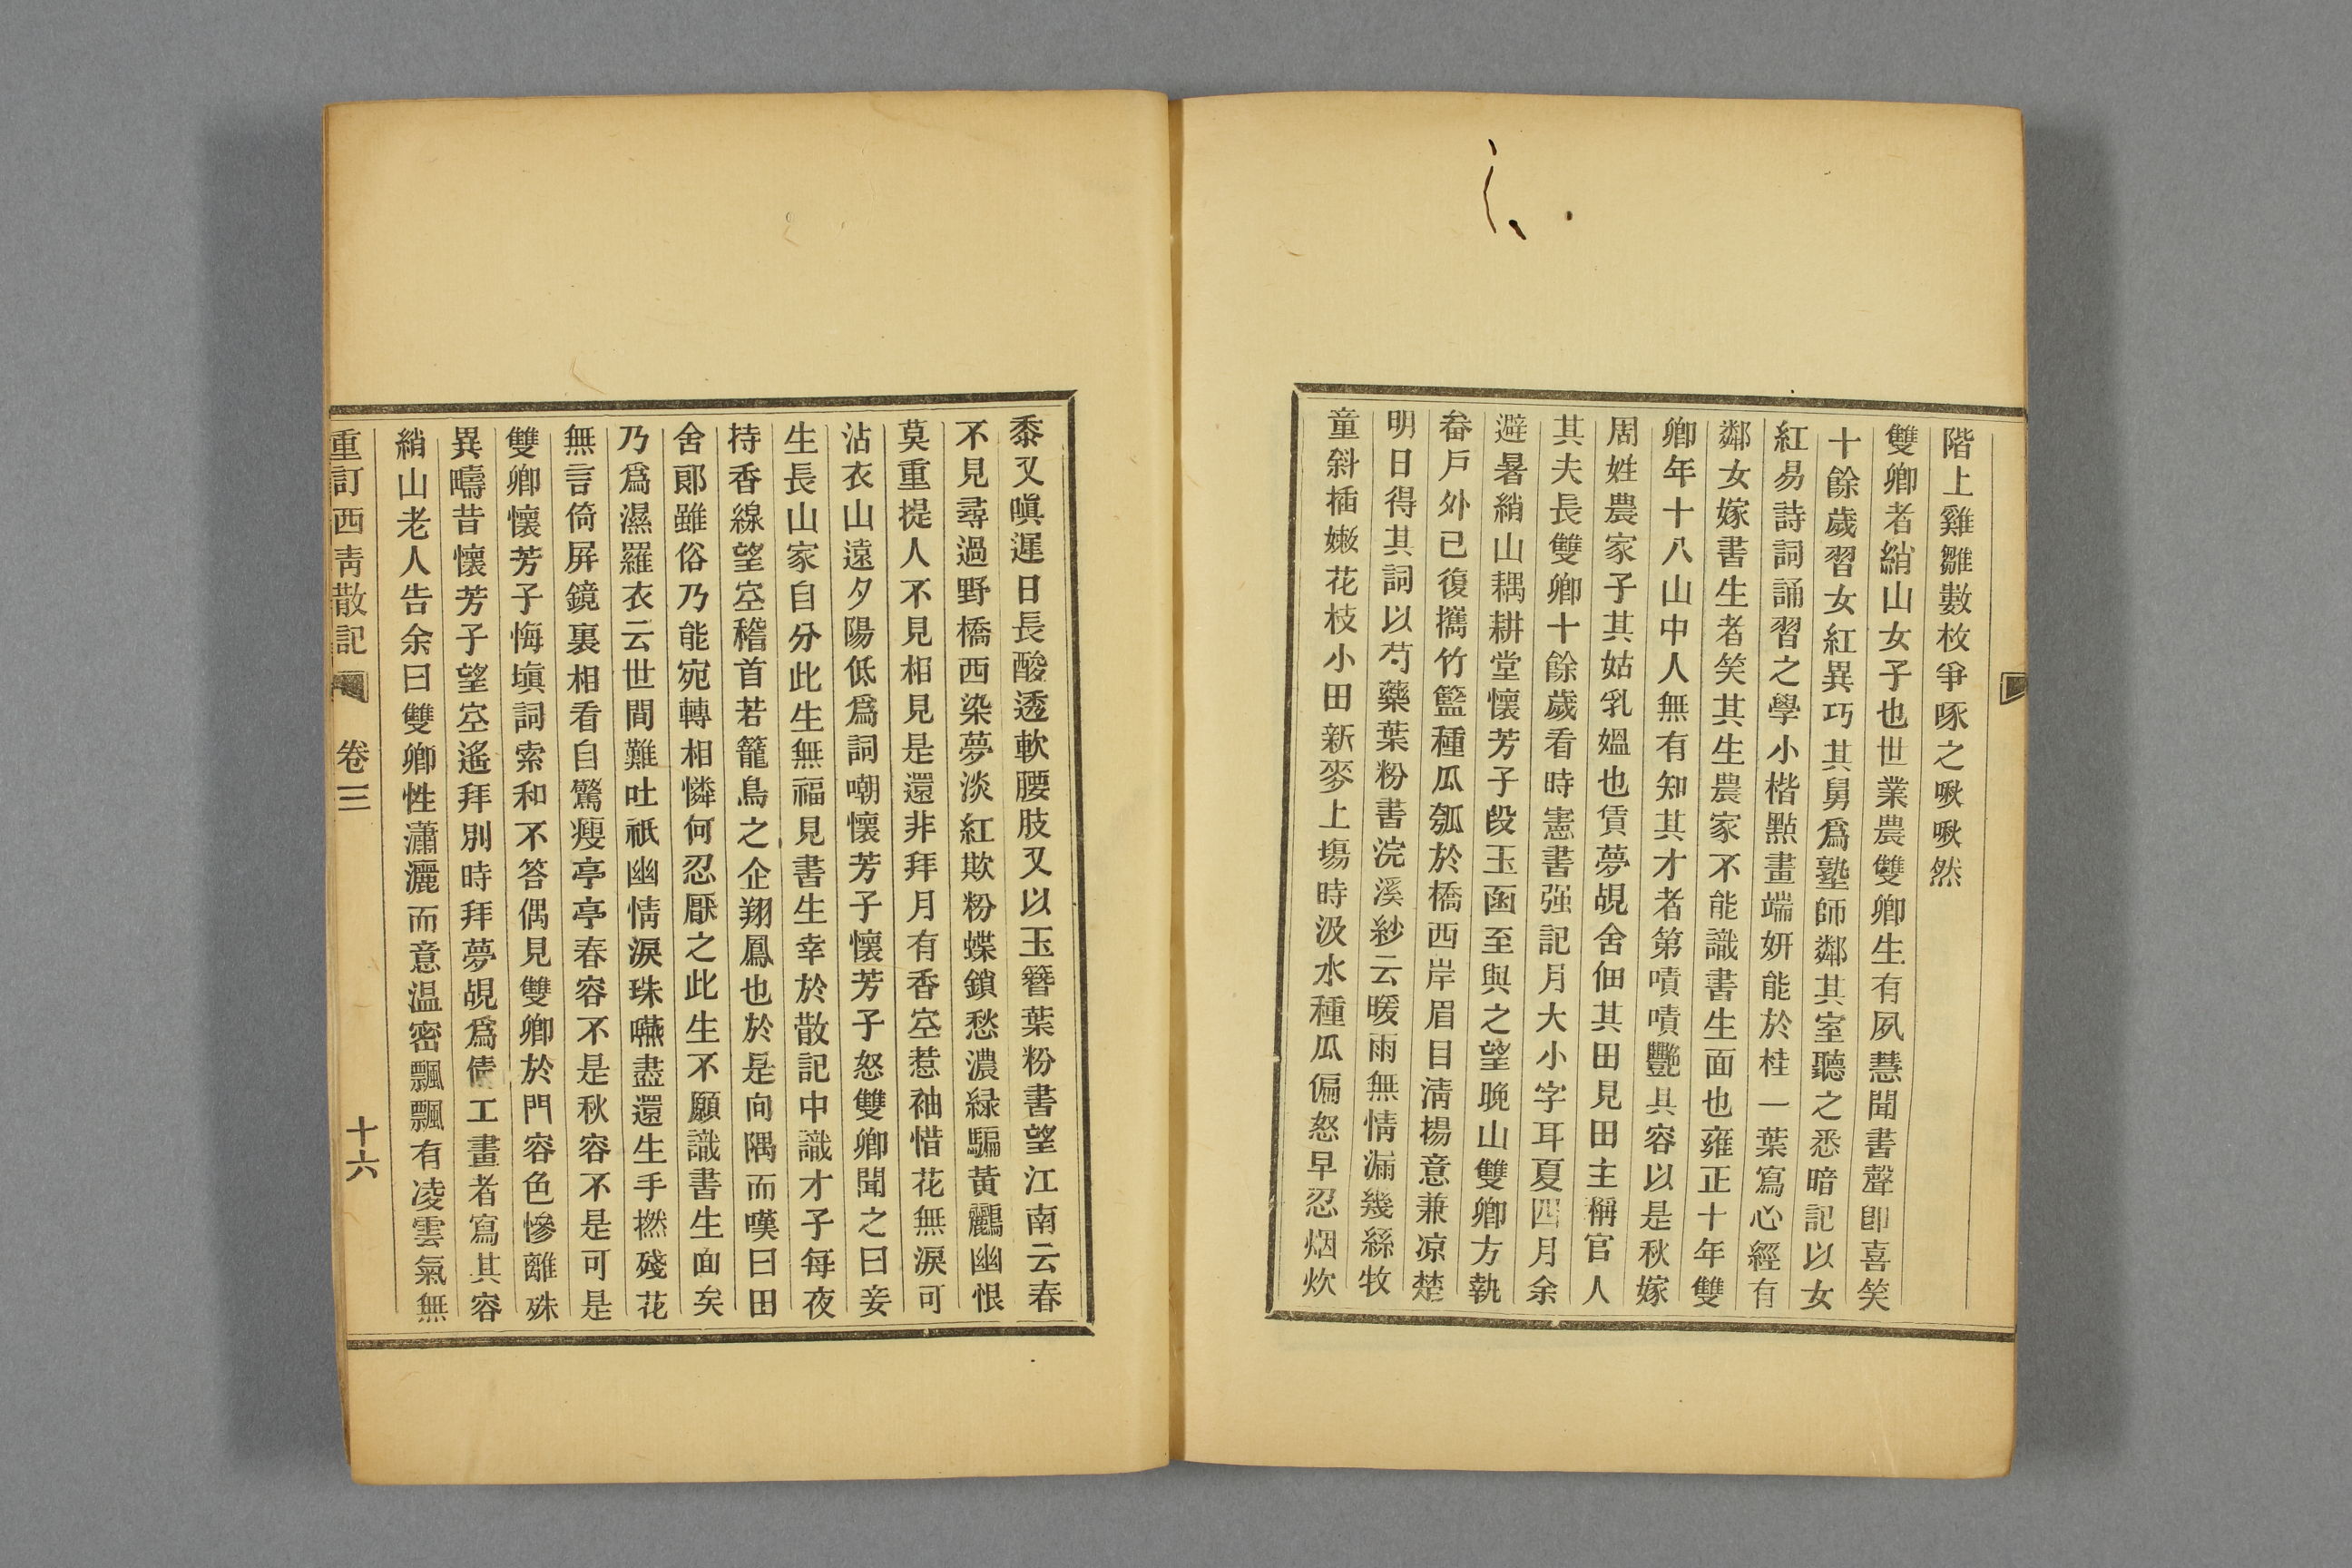 階上雞雛數枚爭啄之啾啾然
雙卿者綃山女子也世業農雙卿生有夙慧聞書聲卽喜笑
十餘歲習女紅異巧其舅爲塾師鄰其室聽之悉暗記以女
紅易詩詞誦習之學小楷點畫端妍能於桂一葉寫心經有
鄰女嫁書生者笑其生農家不能識書生面也雍正十年雙
卿年十八山中人無有知其才者第嘖嘖艷其容以是秋嫁
周姓農家子其姑乳媼也賃夢覘舍佃其田見田主稱官人
其夫長雙卿十餘歲看時憲書强記月大小字耳夏四月余
避暑綃山耦耕堂懷芳子段玉函至與之望晚山雙卿方執
畚戶外已復攜竹籃種瓜瓠於橋西岸眉目淸揚意兼凉楚
明日得其詞以芍藥葉粉書浣溪紗云暖雨無情漏幾絲牧
童斜插嫩花枝小田新麥上塲時汲水種瓜偏怒早忍烟炊
黍又嗔遲日長酸透軟腰肢又以玉簪葉粉書望江南云春
不見尋過野橋西染夢淡紅欺粉蝶鎖愁濃綠騙黃鸝幽恨
莫重提人不見相見是還非拜月有香空惹袖惜花無淚可
沾衣山遠夕陽低爲詞嘲懷芳子懷芳子怒雙卿聞之曰妾
生長山家自分此生無福見書生幸於散記中識才子每夜
持香線望空稽首若籠鳥之企翔鳳也於是向隅而嘆曰田
舍郞雖俗乃能宛轉相憐何忍厭之此生不願識書生面矣
乃爲濕羅衣云世間難吐祇幽情淚珠嚥盡還生手撚殘花
無言倚屛鏡裏相看自驚瘦亭亭春容不是秋容不是可是
雙卿懷芳子悔塡詞索和不答偶見雙卿於門容色慘離殊
異疇昔懷芳子望空遙拜別時拜夢覘爲倩工畫者寫其容
綃山老人告余曰雙卿性瀟灑而意温密飄飄有凌雲氣無
重訂西靑散記 卷三 十六